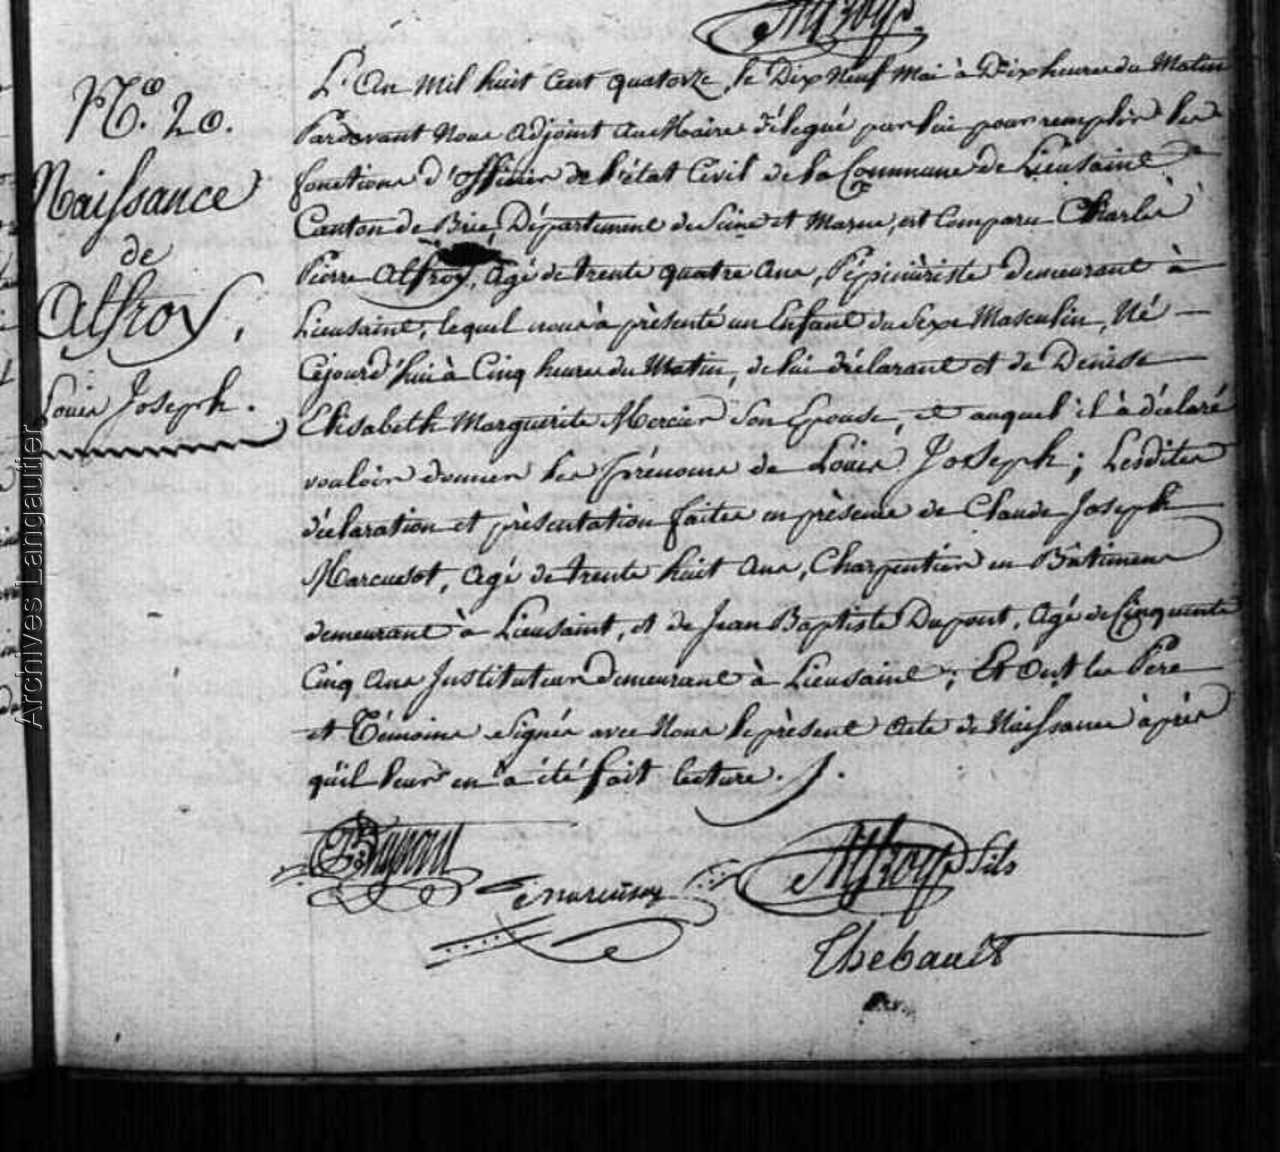 Alfroy.
N.º 20.
Naissance
de
Alfroy,
Louis Joseph.
L'An Mil huit Cent quatorze, le Dix Neuf Mai à Dix heures du Matin
Pardevant Nous Adjoint au Maire délégué par lui pour remplir les
fonctions d'Officier de l'état Civil de la Commune de Lieusaint
Canton de Brie, Département de Seine et Marne, est Comparu Charles
Pierre Alfroy, Agé de trente quatre Ans, Pépiniériste demeurant à
Lieusaint, lequel nous à présenté un Enfant du Sexe Masculin, Né
Cejourd'hui à Cinq heures du Matin, de lui déclarant et de Denise
Elisabeth Marguerite Mercier Son Epouse, et auquel il à déclaré
vouloir donner les prénoms de Louis Joseph; Lesdites
déclaration et présentation faites en présence de Claude Joseph
Marcusot, Agé de trente huit Ans, Charpentier en Bâtimens
demeurant à Lieusaint, et de Jean Baptiste Dupont, Agé de Cinquante
Cinq Ans Instituteur demeurant à Lieusaint; Et Ont les Père
et Témoins Signés avec Nous le présent Acte de Naissance àprès
qu'il leur en à été fait lecture.
Dupont
Alfroy fils
Thebault
Archives Langautier